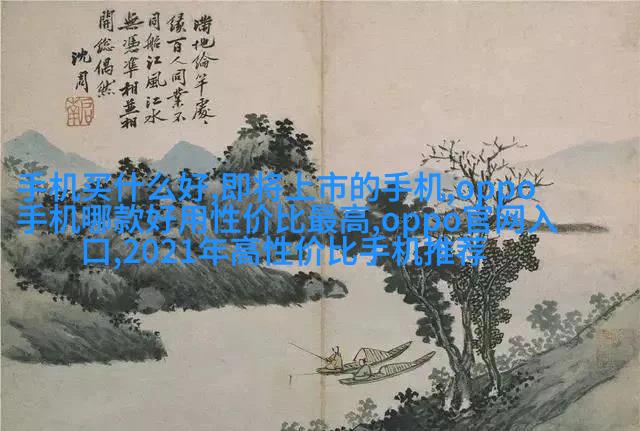 滿地綸竿處〻
緣百人同業不
同船江風江水
無憑準相並相
開總偶然
沈周
手机买什么好,即将上市的手机,oppo
手机哪款好用性价比最高,oppo官网入
口,2021年高性价比手机推荐